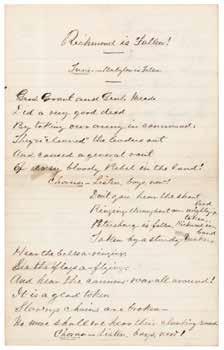 Richmond is Fallen!
Tune.—Babylon is Fallen
Genl Grant and Genl Meade
Did a very good deed
By taking our army in command.
They "cleaned" the traitors out
And caused a general rout
Of every bloody Rebel in the land!
Chorus—Listen, boys, now!
Don't you hear the shout
Ringing throughout our mighty land
Petersburg is fallen, Richmond is taken,
Taken by a sturdy Yankee band
Hear the bells a-ringing
See the flags a-flying
And hear the cannons roar all around!
It is a glad token
Slavery's chains are broken—
No more shall we hear their clanking sound
Chorus—Listen, boys, now!